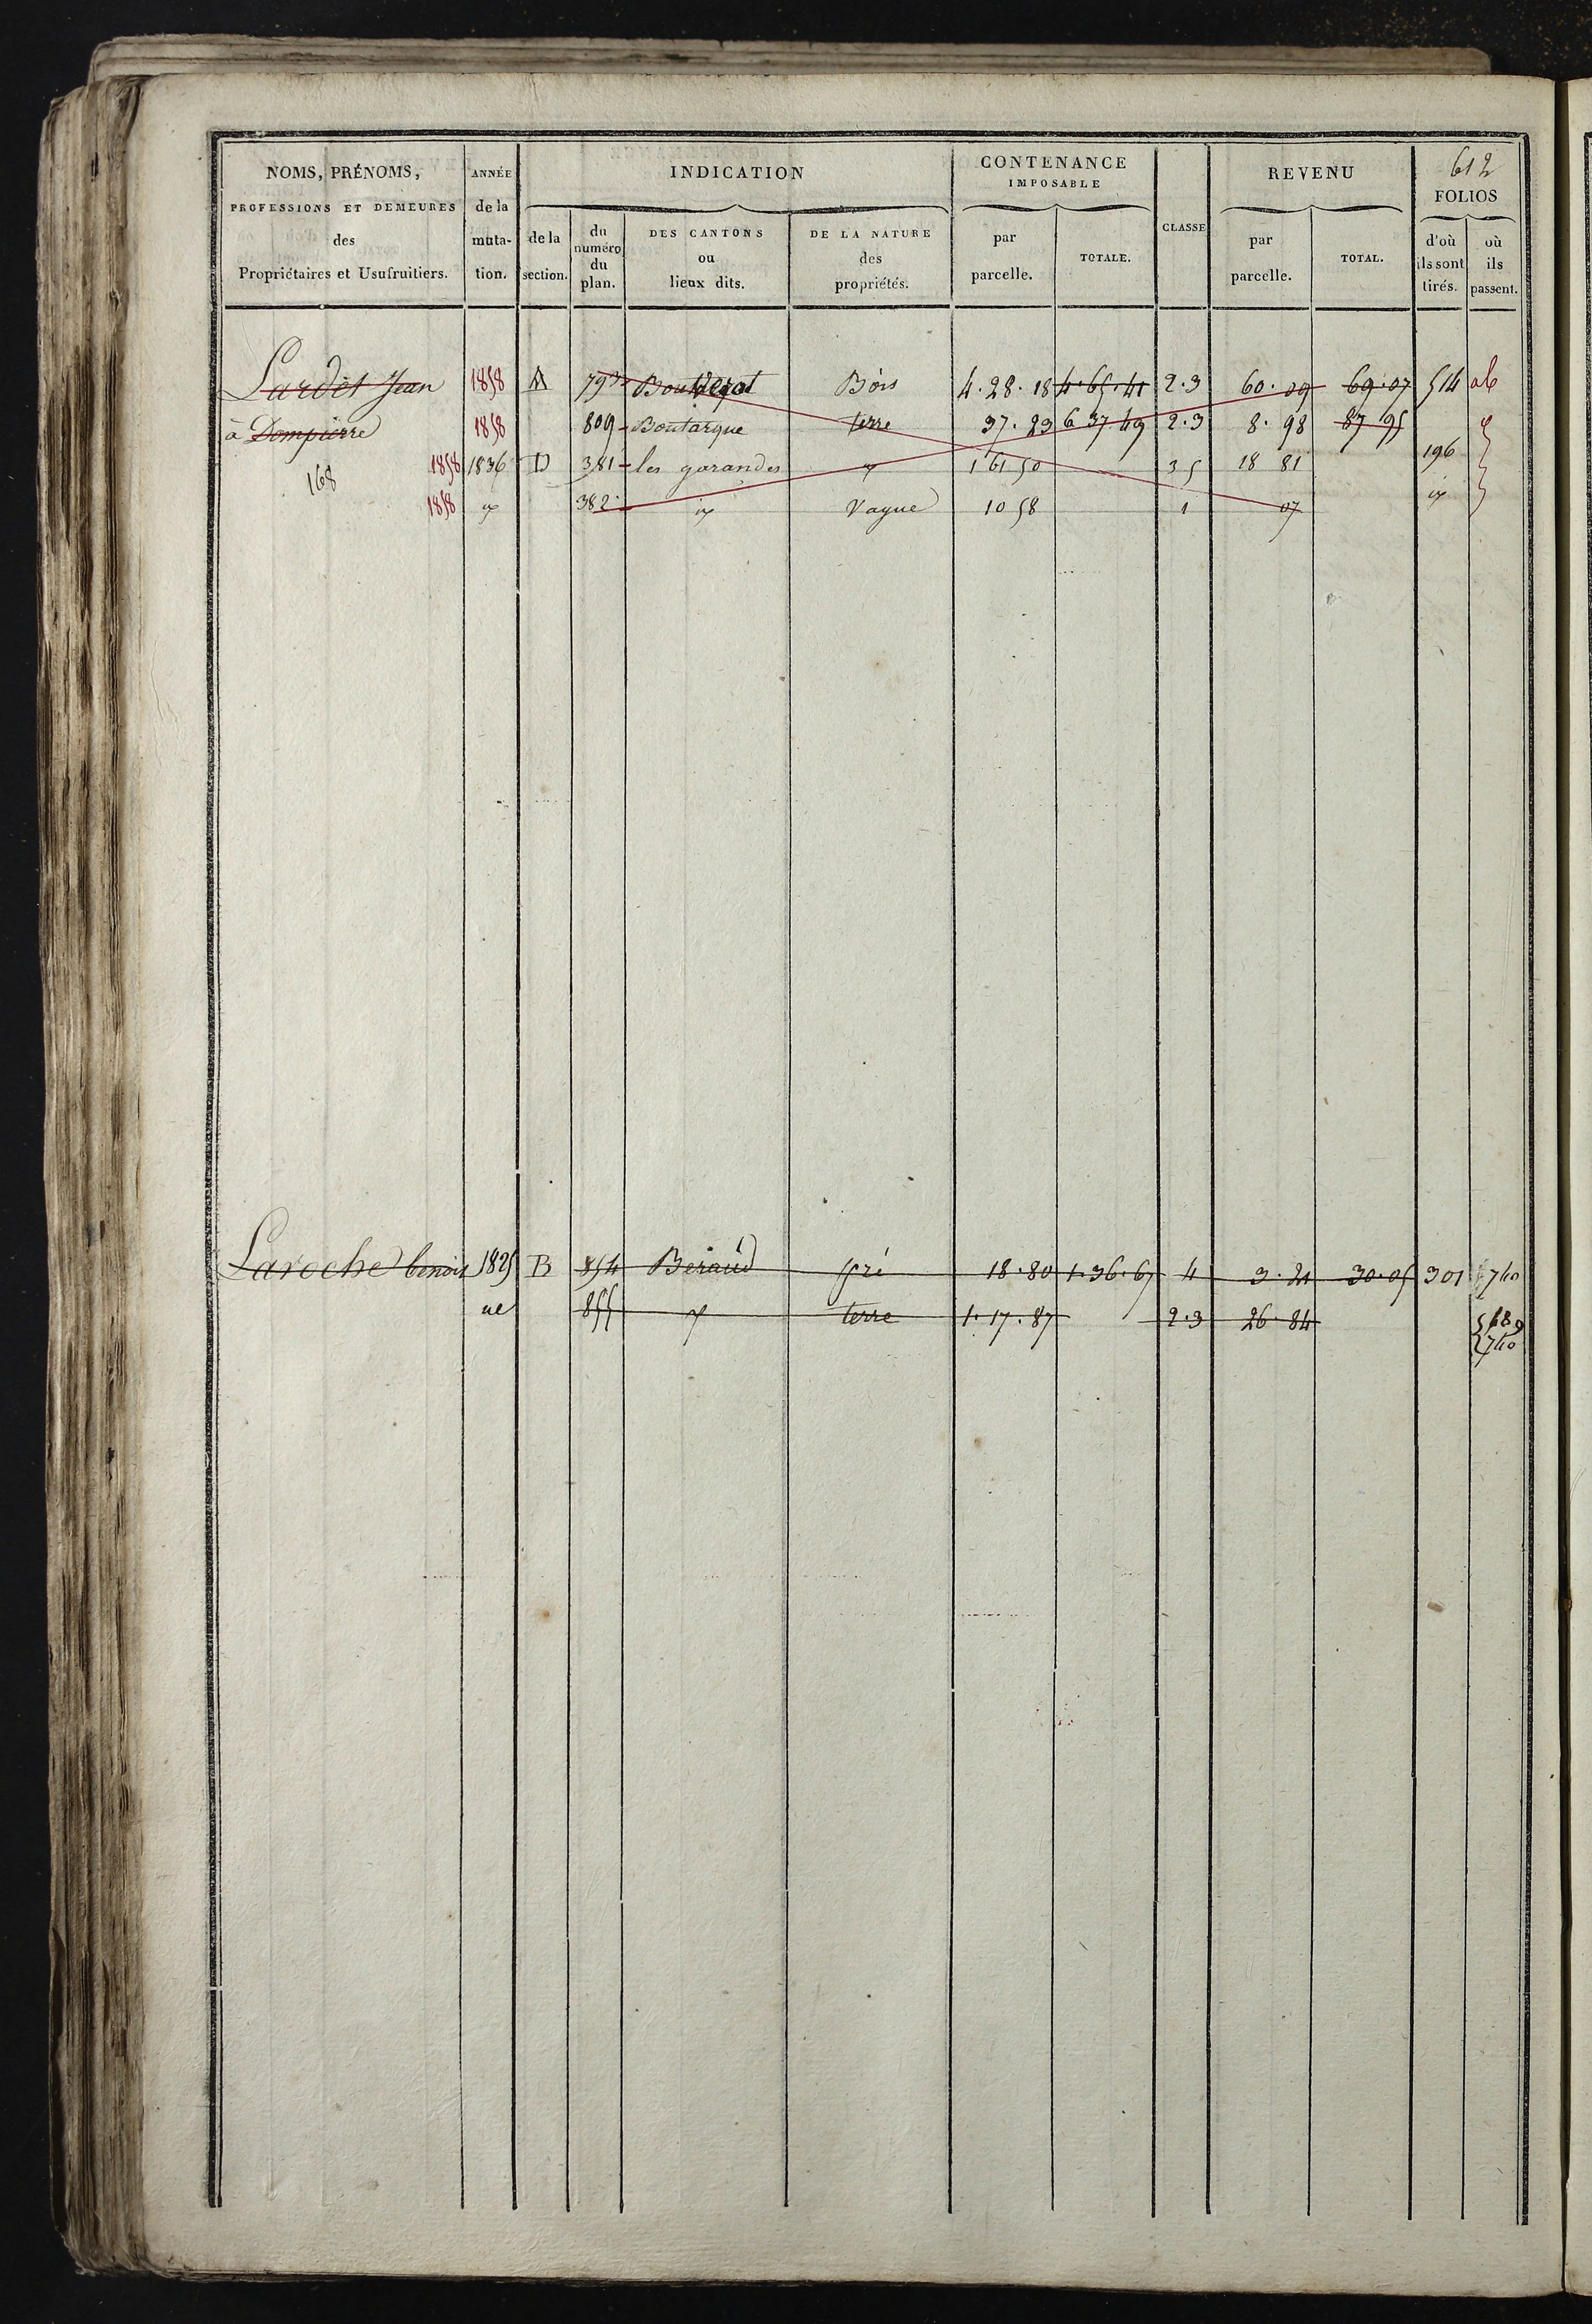 612
NOMS, PRÉNOMS, PROFESSIONS ET DEMEURES des Propriétaires et Usufruitiers.
ANNÉE de la muta-tion.
INDICATION
de la section.
du numéro du plan.
DES CANTONS ou lieux dits.
DE LA NATURE des propriétés.
CONTENANCE IMPOSABLE
par parcelle.
TOTALE.
CLASSE
REVENU
par parcelle.
TOTAL.
FOLIOS
d'où ils sont tirés.
où ils passent.
Lardet Jean 1858 A 793 Bois 4.28.18 4.65.41 2.3 60.09 69.07 514
à Dompierre 1858 809 Boutarque terre 37.23 6 37 49 2.3 8.98 87 95
1858 1836 D 381 les garandes 1 61 50 3 5 18 81 196
168
1858 382 Vague 10 58 1 07
Laroche benoit 1825 B 854 Beraud pré 18.80 1.36.67 4 3.21 30.05 301 740
855 terre 1.17.87 2.3 26.84 689
740